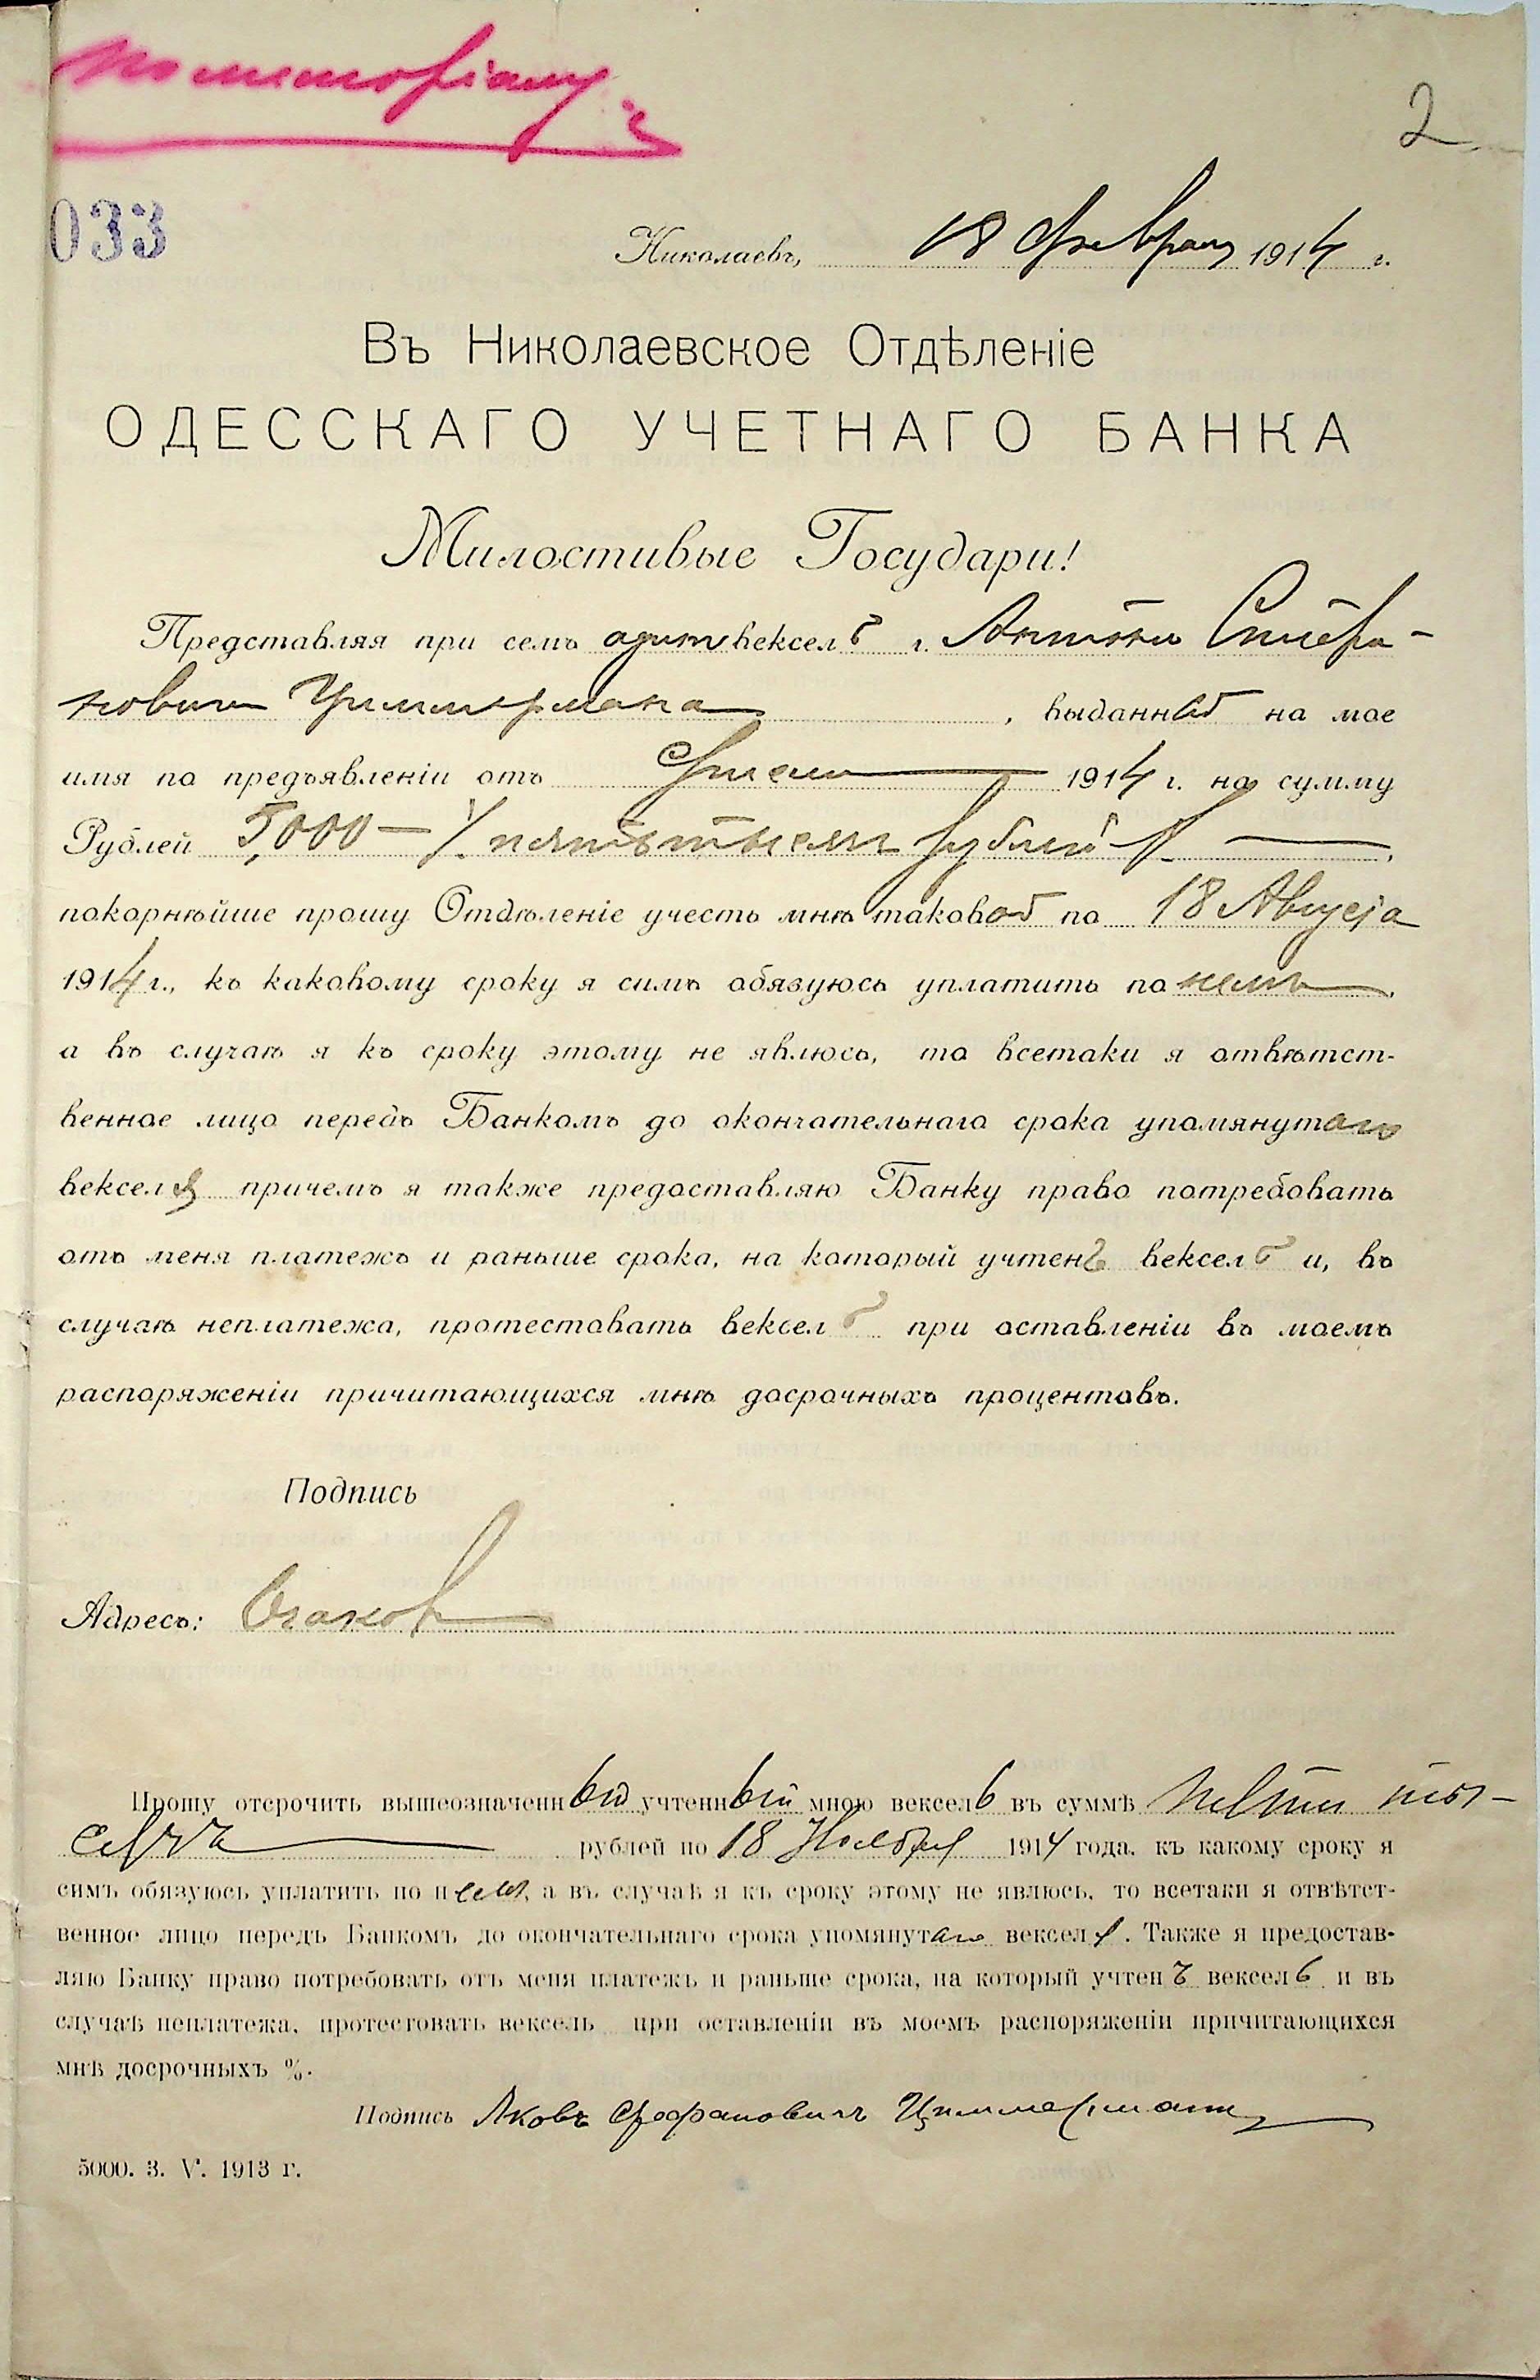 2
033
Николаевъ, 18 Февраля 1914 г.
Въ Николаевское Отдѣленіе
ОДЕССКАГО УЧЕТНАГО БАНКА
Милостивые Государи!
Представляя при семъ одинъ вексель г.
Циммермана, выданный на мое
имя по предъявленіи отъ 1914 г. на сумму
Рублей 5,000 — пять тысячъ рублей
покорнѣйше прошу Отдѣленіе учесть мнѣ таковой по 18 Августа
1914 г., къ каковому сроку я симъ обязуюсь уплатить по немъ,
а въ случаѣ я къ сроку этому не явлюсь, то всетаки я отвѣтст-
венное лицо передъ Банкомъ до окончательнаго срока упомянутаго
векселя причемъ я также предоставляю Банку право потребовать
отъ меня платежъ и раньше срока, на который учтенъ вексель и, въ
случаѣ неплатежа, протестовать вексель при оставленіи въ моемъ
распоряженіи причитающихся мнѣ досрочныхъ процентовъ.
Подпись
Адресъ: Очаков
Прошу отсрочить вышеозначенный учтенный мною вексель въ суммѣ пять тыс-
рублей по 18 Ноября 1914 года, къ какому сроку я
симъ обязуюсь уплатить по нем, а въ случаѣ я къ сроку этому не явлюсь, то всетаки я отвѣтст-
венное лицо передъ Банкомъ до окончательнаго срока упомянутаго векселя. Также я предостав-
ляю Банку право потребовать отъ меня платежъ и раньше срока, на который учтенъ вексель и въ
случаѣ неплатежа, протестовать вексель при оставленіи въ моемъ распоряженіи причитающихся
мнѣ досрочныхъ %.
Подпись Яковъ Стефановичъ Циммерманъ
5000. 3. V. 1913 г.